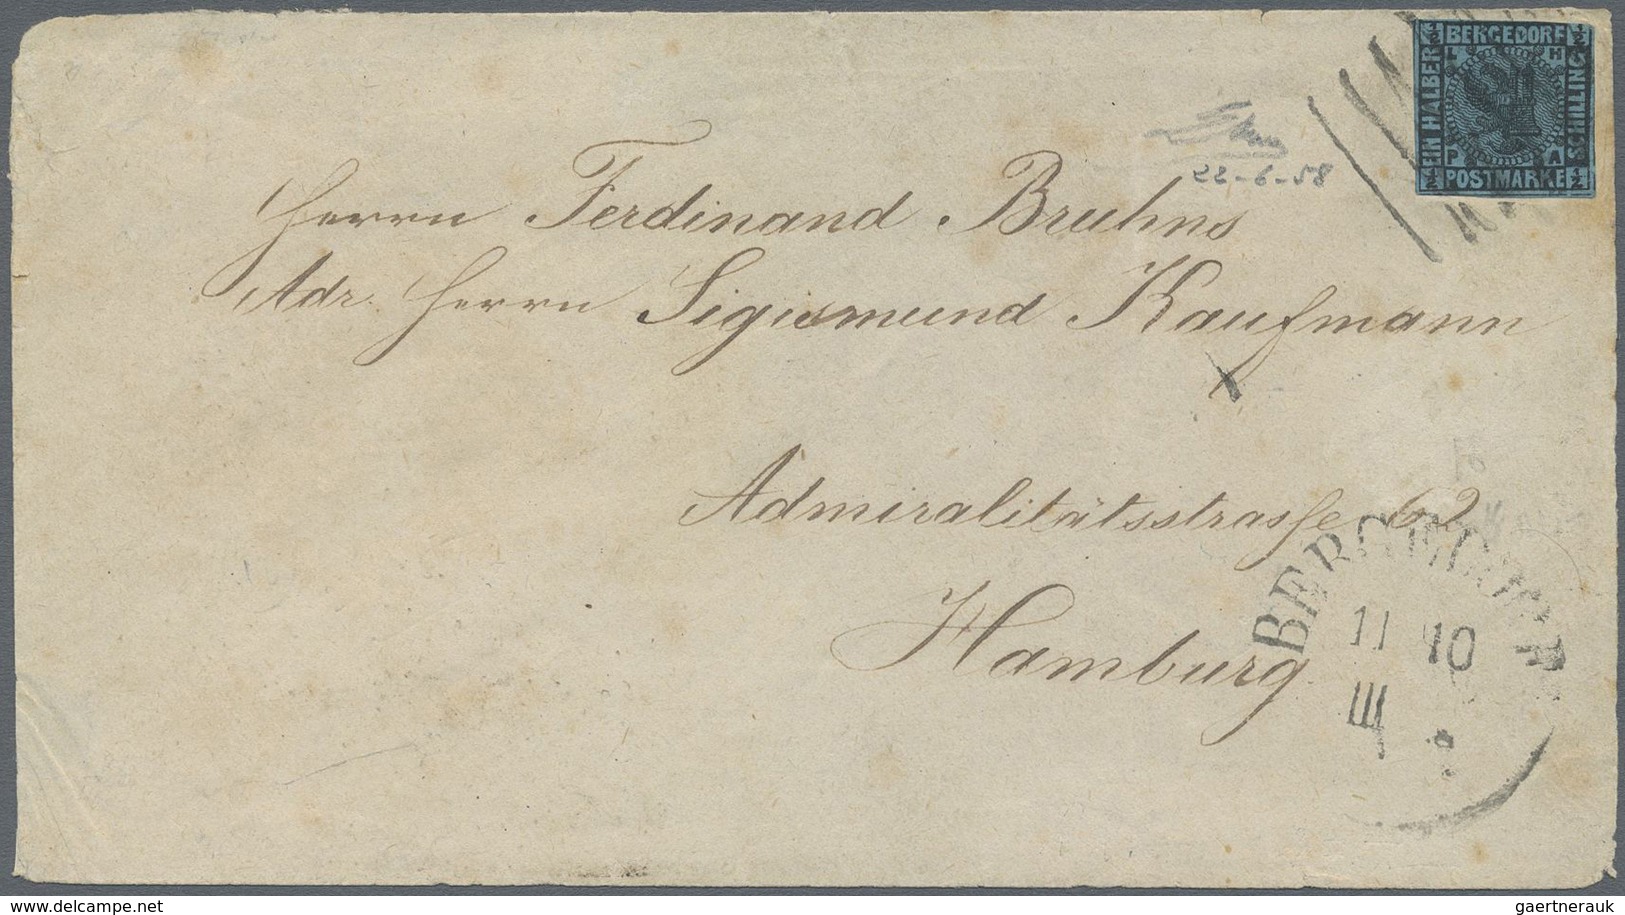 ½ BERGEDORF ½
L H
EIN HALBER
SCHILLING
P A
½ POSTMARKE ½
22-6-58
Herrn Ferdinand Bruhns
Adr. Herrn Sigismund Kaufmann
Admiralitätsstrasse 62
Hamburg
BERGEDORF
11 10
III
delcampe.net
gaertnerauk